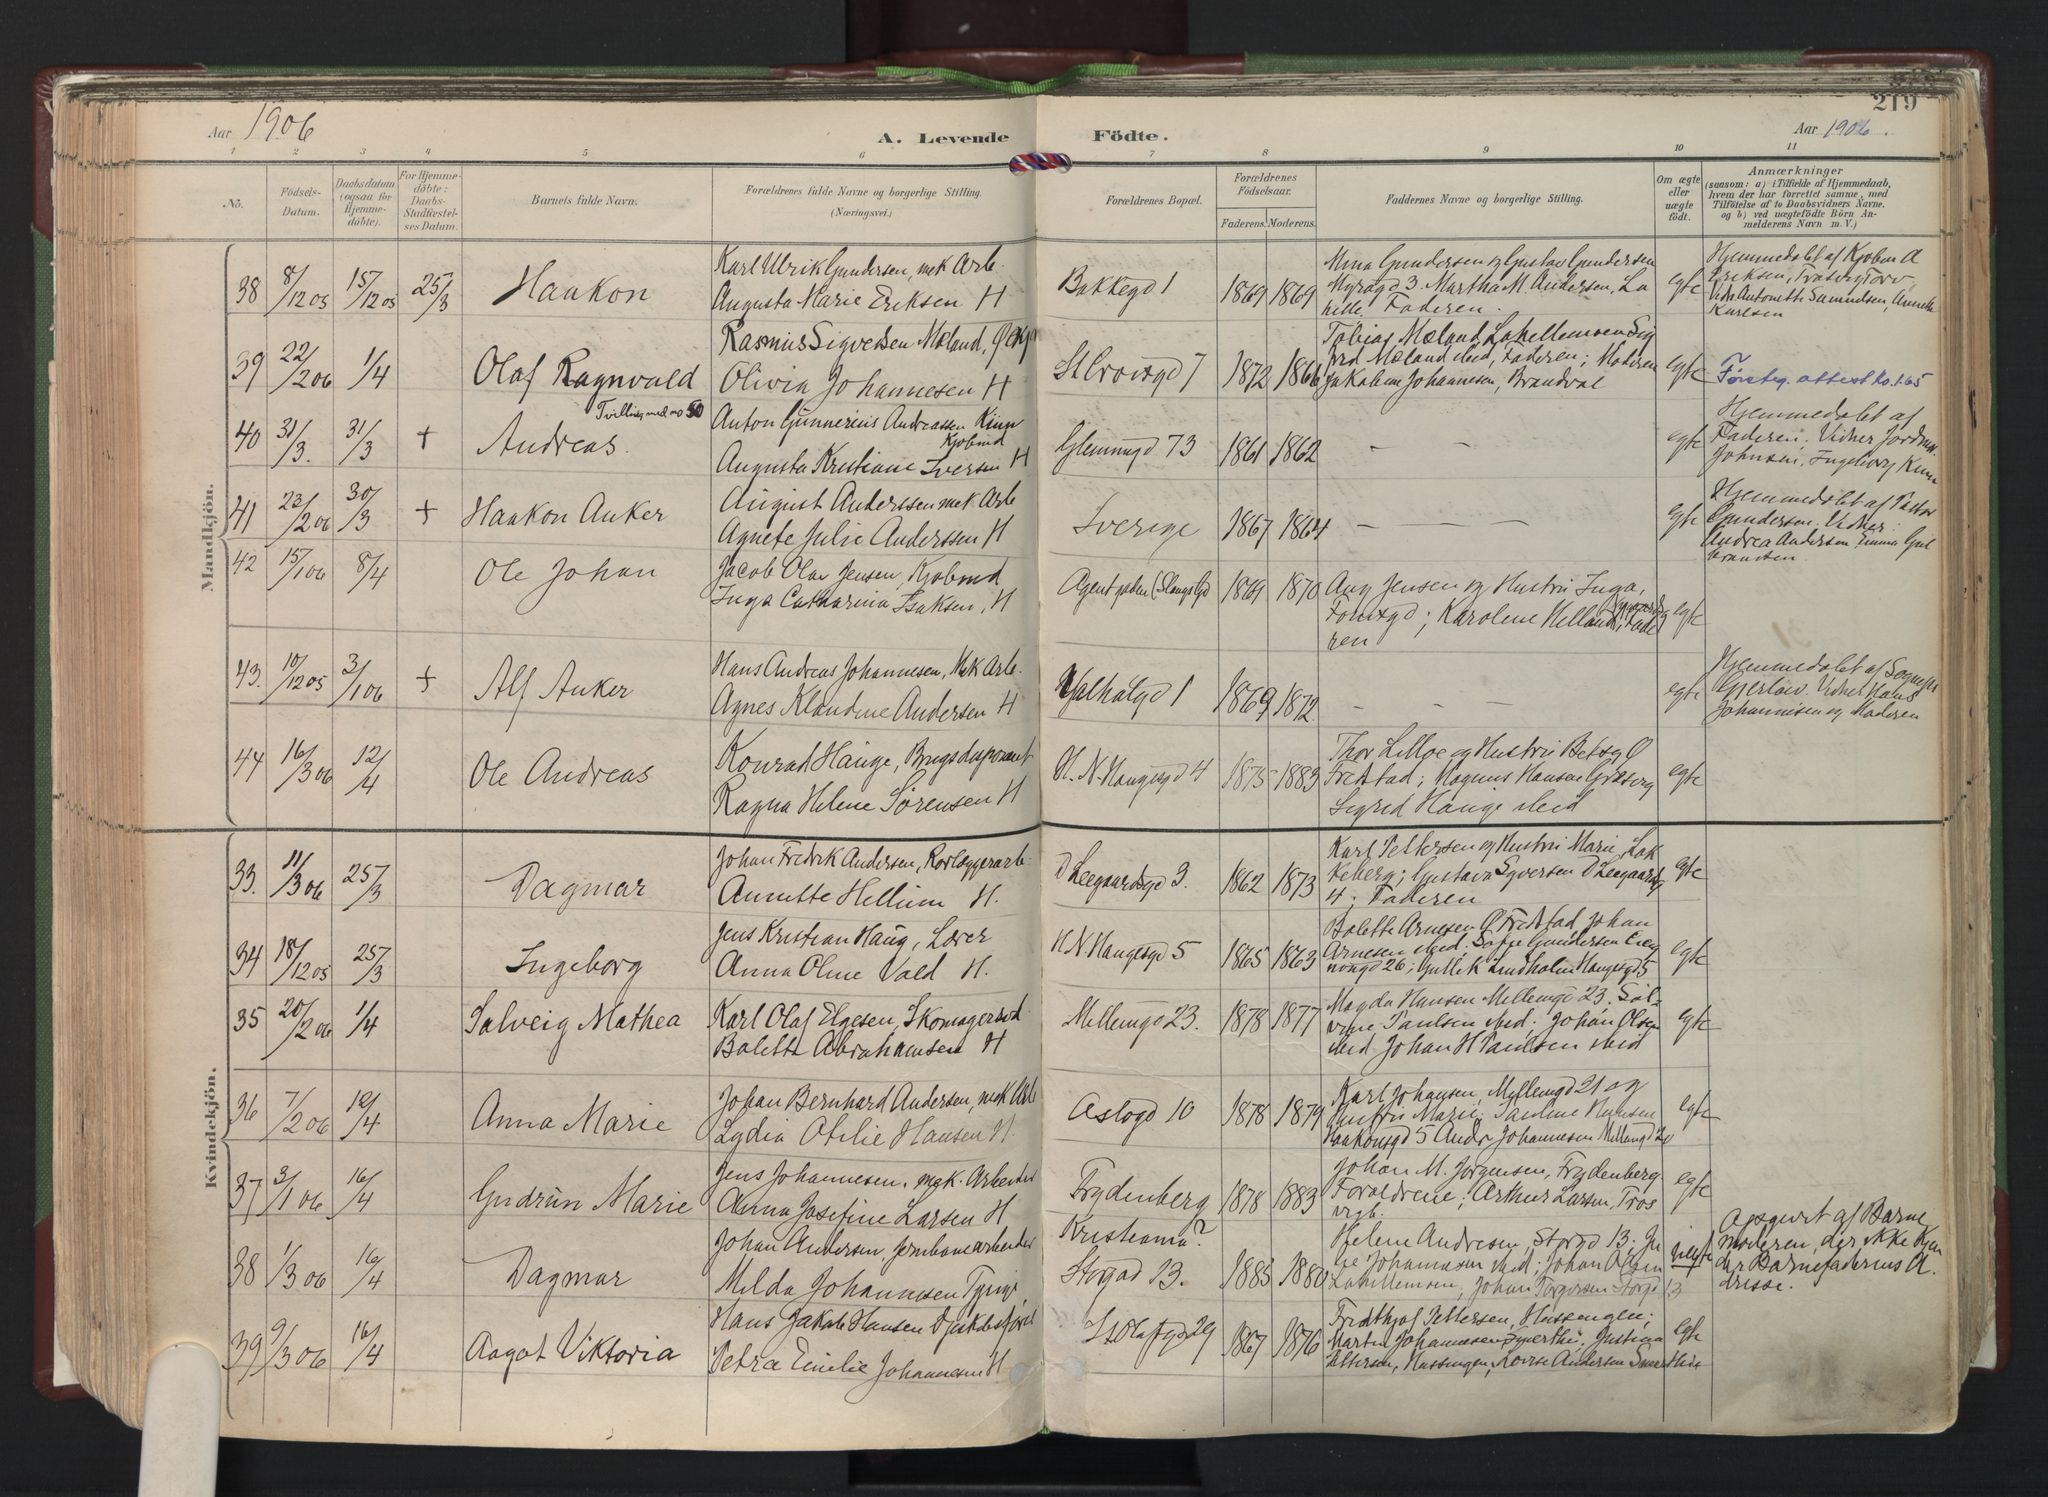 219
Aar 1906
A. Levende Födte.
Aar 1906.
1 2 3 4 5 6 7 8 9 10 11
No.
Födsels-Datum.
Daabsdatum (ogsaa for Hjemme-döbte).
For Hjemme-döbte: Daabs-Stadfæstel-ses Datum.
Barnets fulde Navn.
Forældrenes fulde Navne og borgerlige Stilling.
(Næringsvei.)
Forældrenes Bopæl.
Forældrenes Födselsaar.
Faderens. Moderens.
Faddernes Navne og borgerlige Stilling.
Om ægte eller uægte födt.
Anmærkninger
(saasom: a) i Tilfælde af Hjemmedaab,
hvem der har forrettet samme, med
Tilföielse af to Daabsvidners Navne.
og b) ved uægtefödte Börn An-
melderens Navn m. V.)
Mandkjön.
38 8/12 05 15/12 05 25/3 Haakon
Karl Ulrik Gundersen, mek Arb.
Augusta Marie Eriksen H
Bakkegd 1 1869 1869
Mina Gundersen og Gustav Gundersen
Myragd 3. Martha M Andersen, La
hille. Faderen.
egte
Hjemmedøbt af Kjøbm A
Eriksen, Torv,
Vidn Antonette Samuelsen, Annette
Karlsen
39 22/2 06 1/4 Olaf Ragnvald
Rasmus Sigvedsen Mæland,
Olivia Johannesen H
St Croixgd 7 1872 1866
Tobias Mæland, Lahellemoen Sig
frd Mæland ibid, Faderen; Moderen
Jakobine Johannesen, Brandval
egte
Foreteg. attest ko. 1.65
40 31/3. 31/3 + Andreas.
Tvilling med no 50
Anton Gunnerius Andreassen Kinn
Kjøbmd
Augusta Kristiane Iversen H
Glemmegd 73 1861 1862
– – –
egte
Hjemmedøbt af
Faderen. Vidner Jordm.
Johnsen, Ingeborg Kinn
41 23/2 06 30/3 + Haakon Anker
August Anderssen mek Arb
Agnete Julie Anderssen H
Sverige 1867 1864
– – –
egte
Hjemmedøbt af Pastor
Gundersen. Vidner:
Andrea Andersen, Emma Gul
brandsen.
42 15/1 06 8/4 Ole Johan
Jacob Olav Jensen, Kjøbmd
Inga Catharina Isaksen, H
Agentgaden (Slangsgd 1869 1870
Aug Jensen og Hustru Inga,
Torvgd; Karolene Helland, Fade
ren
egte
43. 10/12 05 3/1 06 + Alf Anker
Hans Andreas Johannesen, Mek Arb.
Agnes Klaudine Andersen H
Valhalgd 1 1869 1872.
– – –
egte
Hjemmedøbt af Sognepr
Gjerløw. Vidner Hans
Johannesen og Moderen
44 16/3 06 12/4 Ole Andreas
Konrad Hauge, Brugsdisponent
Ragna Helene Sørensen H
H. N. Haugesgd 4 1875 1883
Thor Lilloe og Hustru Betsy Ø
Fredstad; Magnus Hansen Graaberg
Sigrid Hauge ibid
egte
Kvindekjön.
33. 11/3 06 25/3 Dagmar
Johan Fredrik Andersen, Rørlæggerarb.
Annette Hellum H.
D Leegaardsgd 3. 1862 1873
Karl Pettersen og Hustru Marie, Lak
keberg; Gustava Syversen D Leegaardsg
4; Faderen
egte
34 18/12 05 25/3 Ingeborg
Jens Kristian Haug, Lærer
Anna Oline Vold H.
H N Haugesgd 5 1865 1863
Bolette Arnesen Ø Fredstad, Johan
Arnesen ibid; Sofie Gundersen Egg
26; Gullik Lindholm Haugesgd 5
egte
35 20/2 06 1/4 Salveig Mathea
Karl Olaf Elgesen, Skomagersvd.
Bolette Abrahamsen H
Mellemgd 23. 1878 1877
Magda Hansen Mellemgd 23. Sal-
vine Paulsen ibid; Johan Olsen
ibid, Johan H Paulsen ibid
egte
36 7/2 06 12/4 Anna Marie
Johan Bernhard Andersen, mek Arb
Lydia Otilie Hansen H.
Astogd 10 1878 1879
Karl Johansen, Mellemgd 21 og
Hustru Marie; Pauline Hansen
Haakonsgd 5 Andr Johannesen Mellemgd 20
egte
37 3/1 06 16/4 Gudrun Marie
Jens Johannesen. mek. Arbeider
Anna Josefine Larsen H
Frydenberg 1878 1883
Johan M. Jorgensen, Frydenberg.
Forældrene; Arthur Larsen, Tros
vigb.
egte
38 1/3 06 16/4 Dagmar
Johan Andersen, Jernbanearbeider
Milda Johannesen Tyrigr
Kristiania?
Storgd 13. 1885 1880
Helene Andresen, Storgd 13; In
ge Johannesen ibid; Johan Olsen
Lahellemoen, Johan Torgersen Storgd 13
uegte
Opgivet af Barne
moderen, der ikke kjen
der Barnefaderens A
dresse.
39 9/3 06 16/4 Aagot Viktoria
Hans Jakob Hansen
Petra Emilie Johannesen H
St Olafsgd 29 1867 1876
Fredthjof Pettersen, Hassengen;
Martin Johannesen Smerthu, Justina
Pettersen, Hassengen, Andersen Smerthu
egte